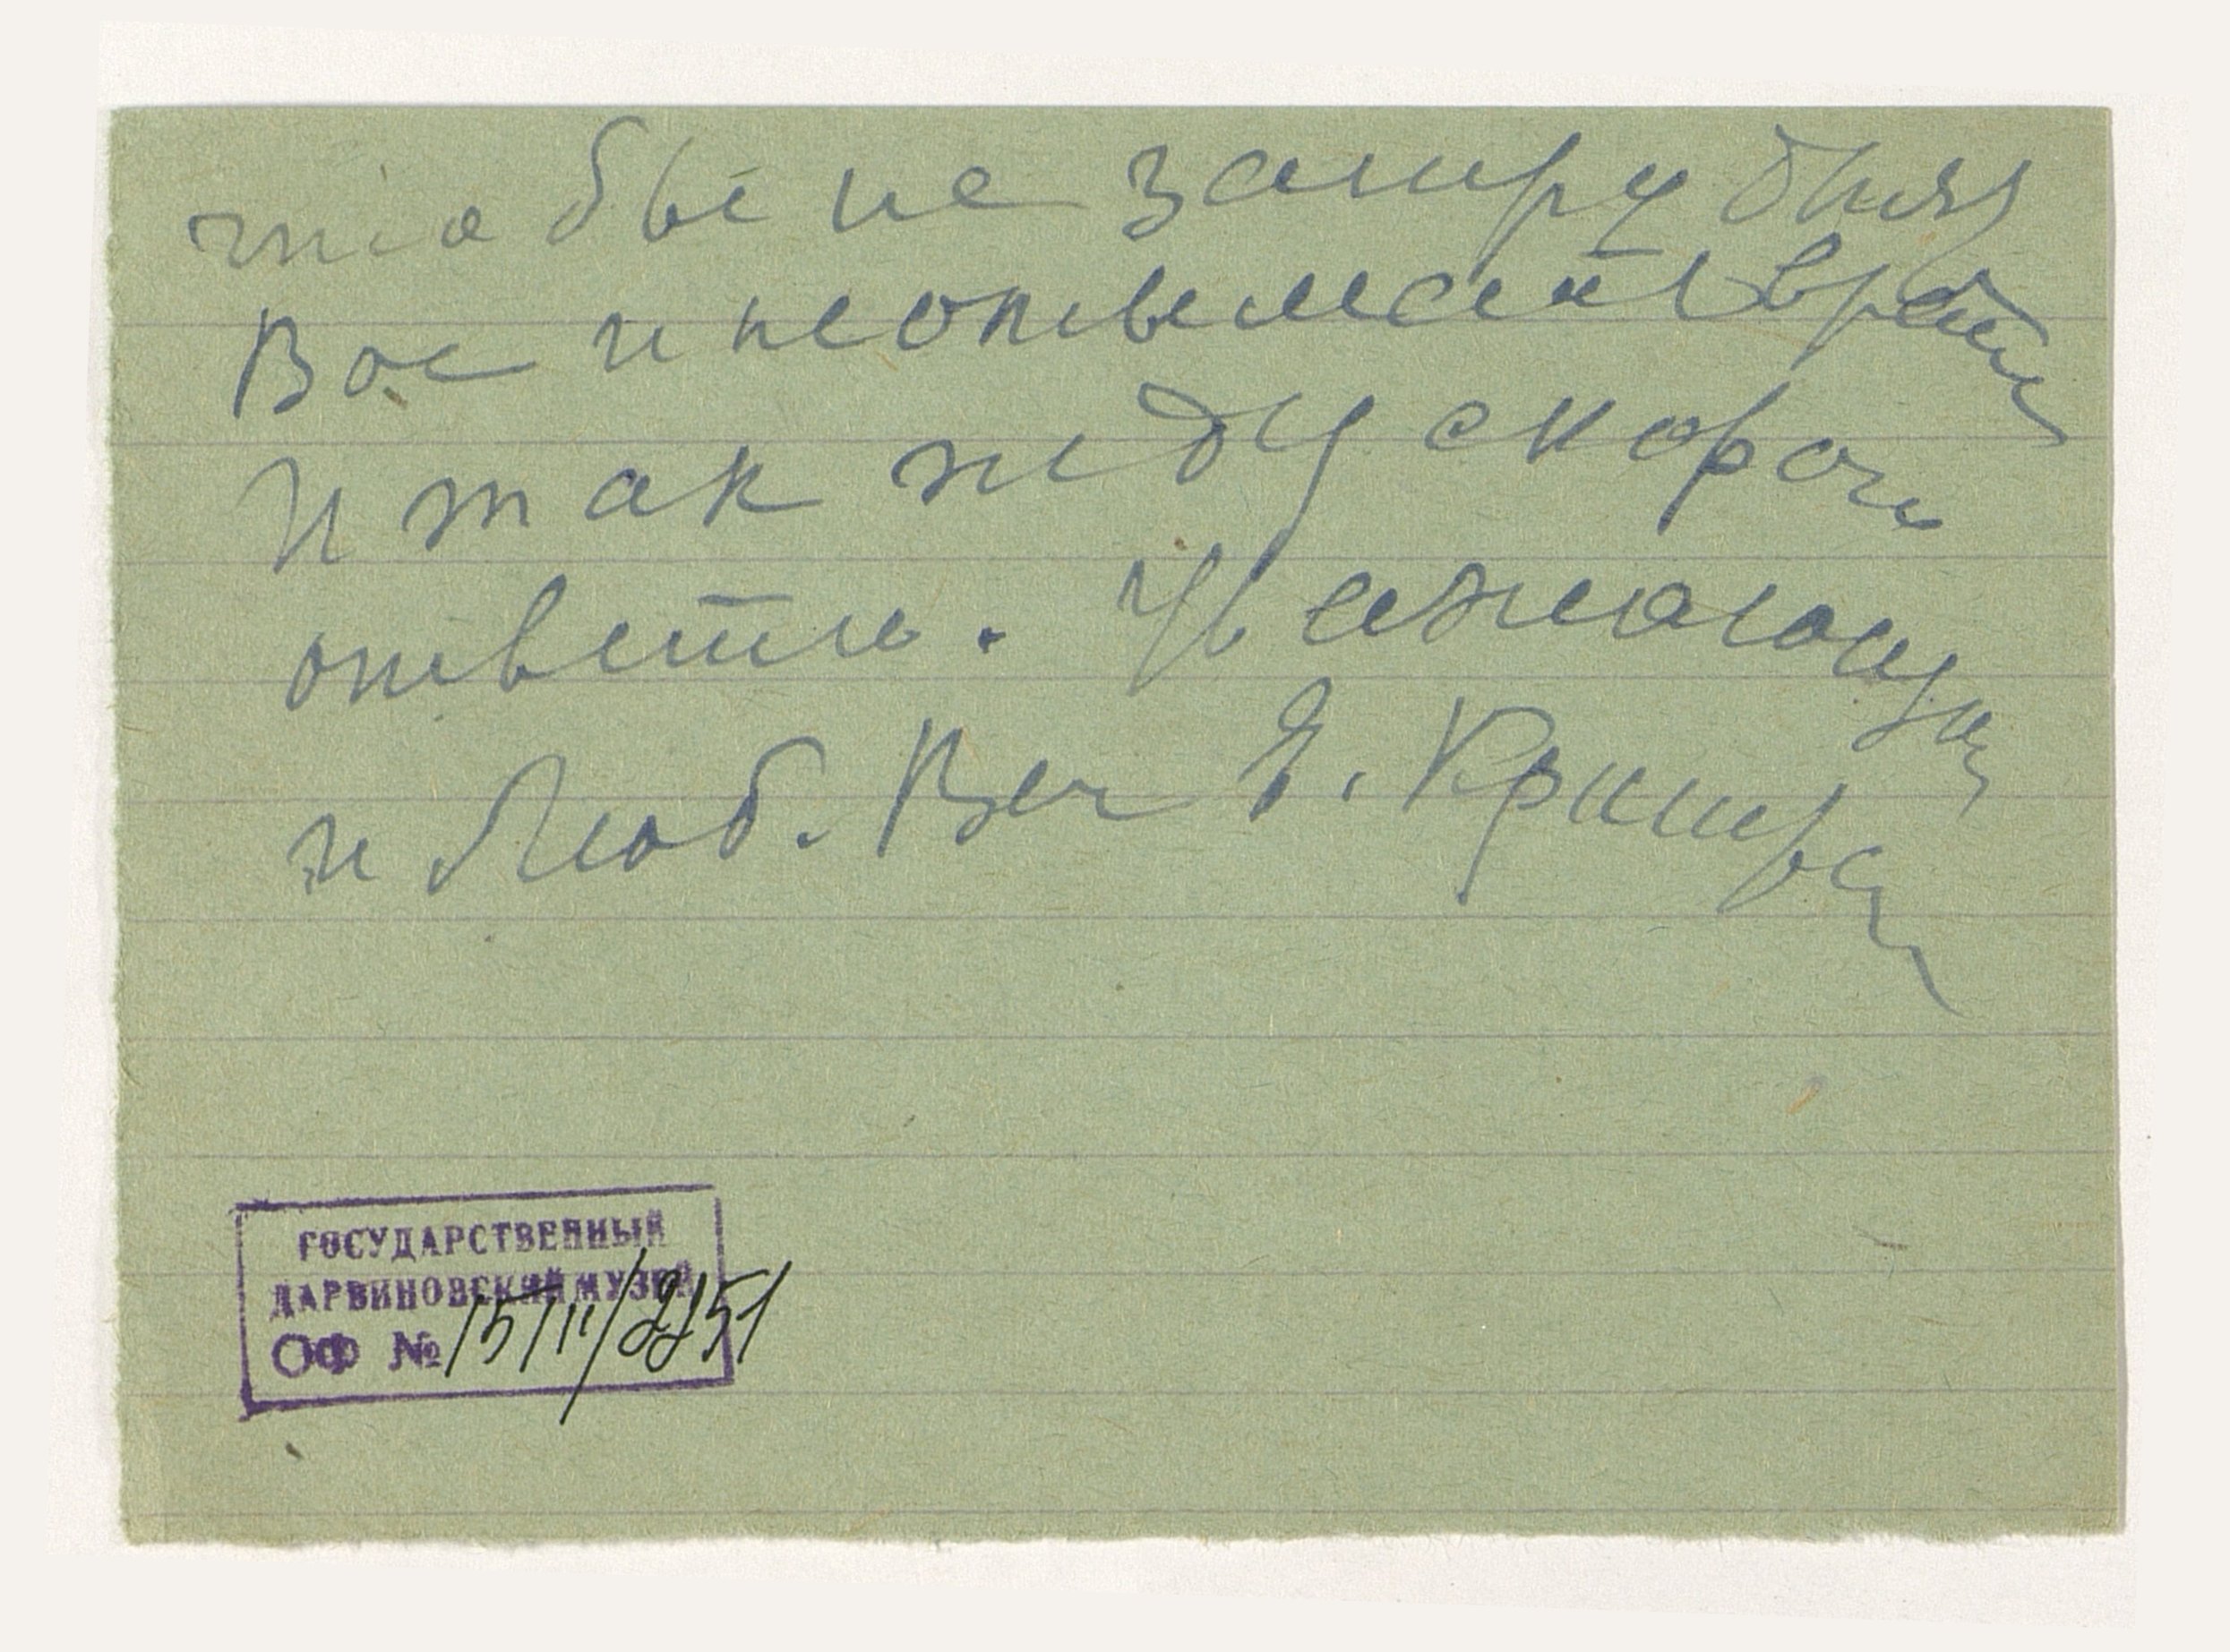 что бы не затруднять
Вас и не отымать время
И так жду скорого
ответа. Уважающая
и Люб. Вас Я.
ГОСУДАРСТВЕННЫЙ
ДАРВИНОВСКИЙ МУЗЕЙ
ОФ № 15111/2251